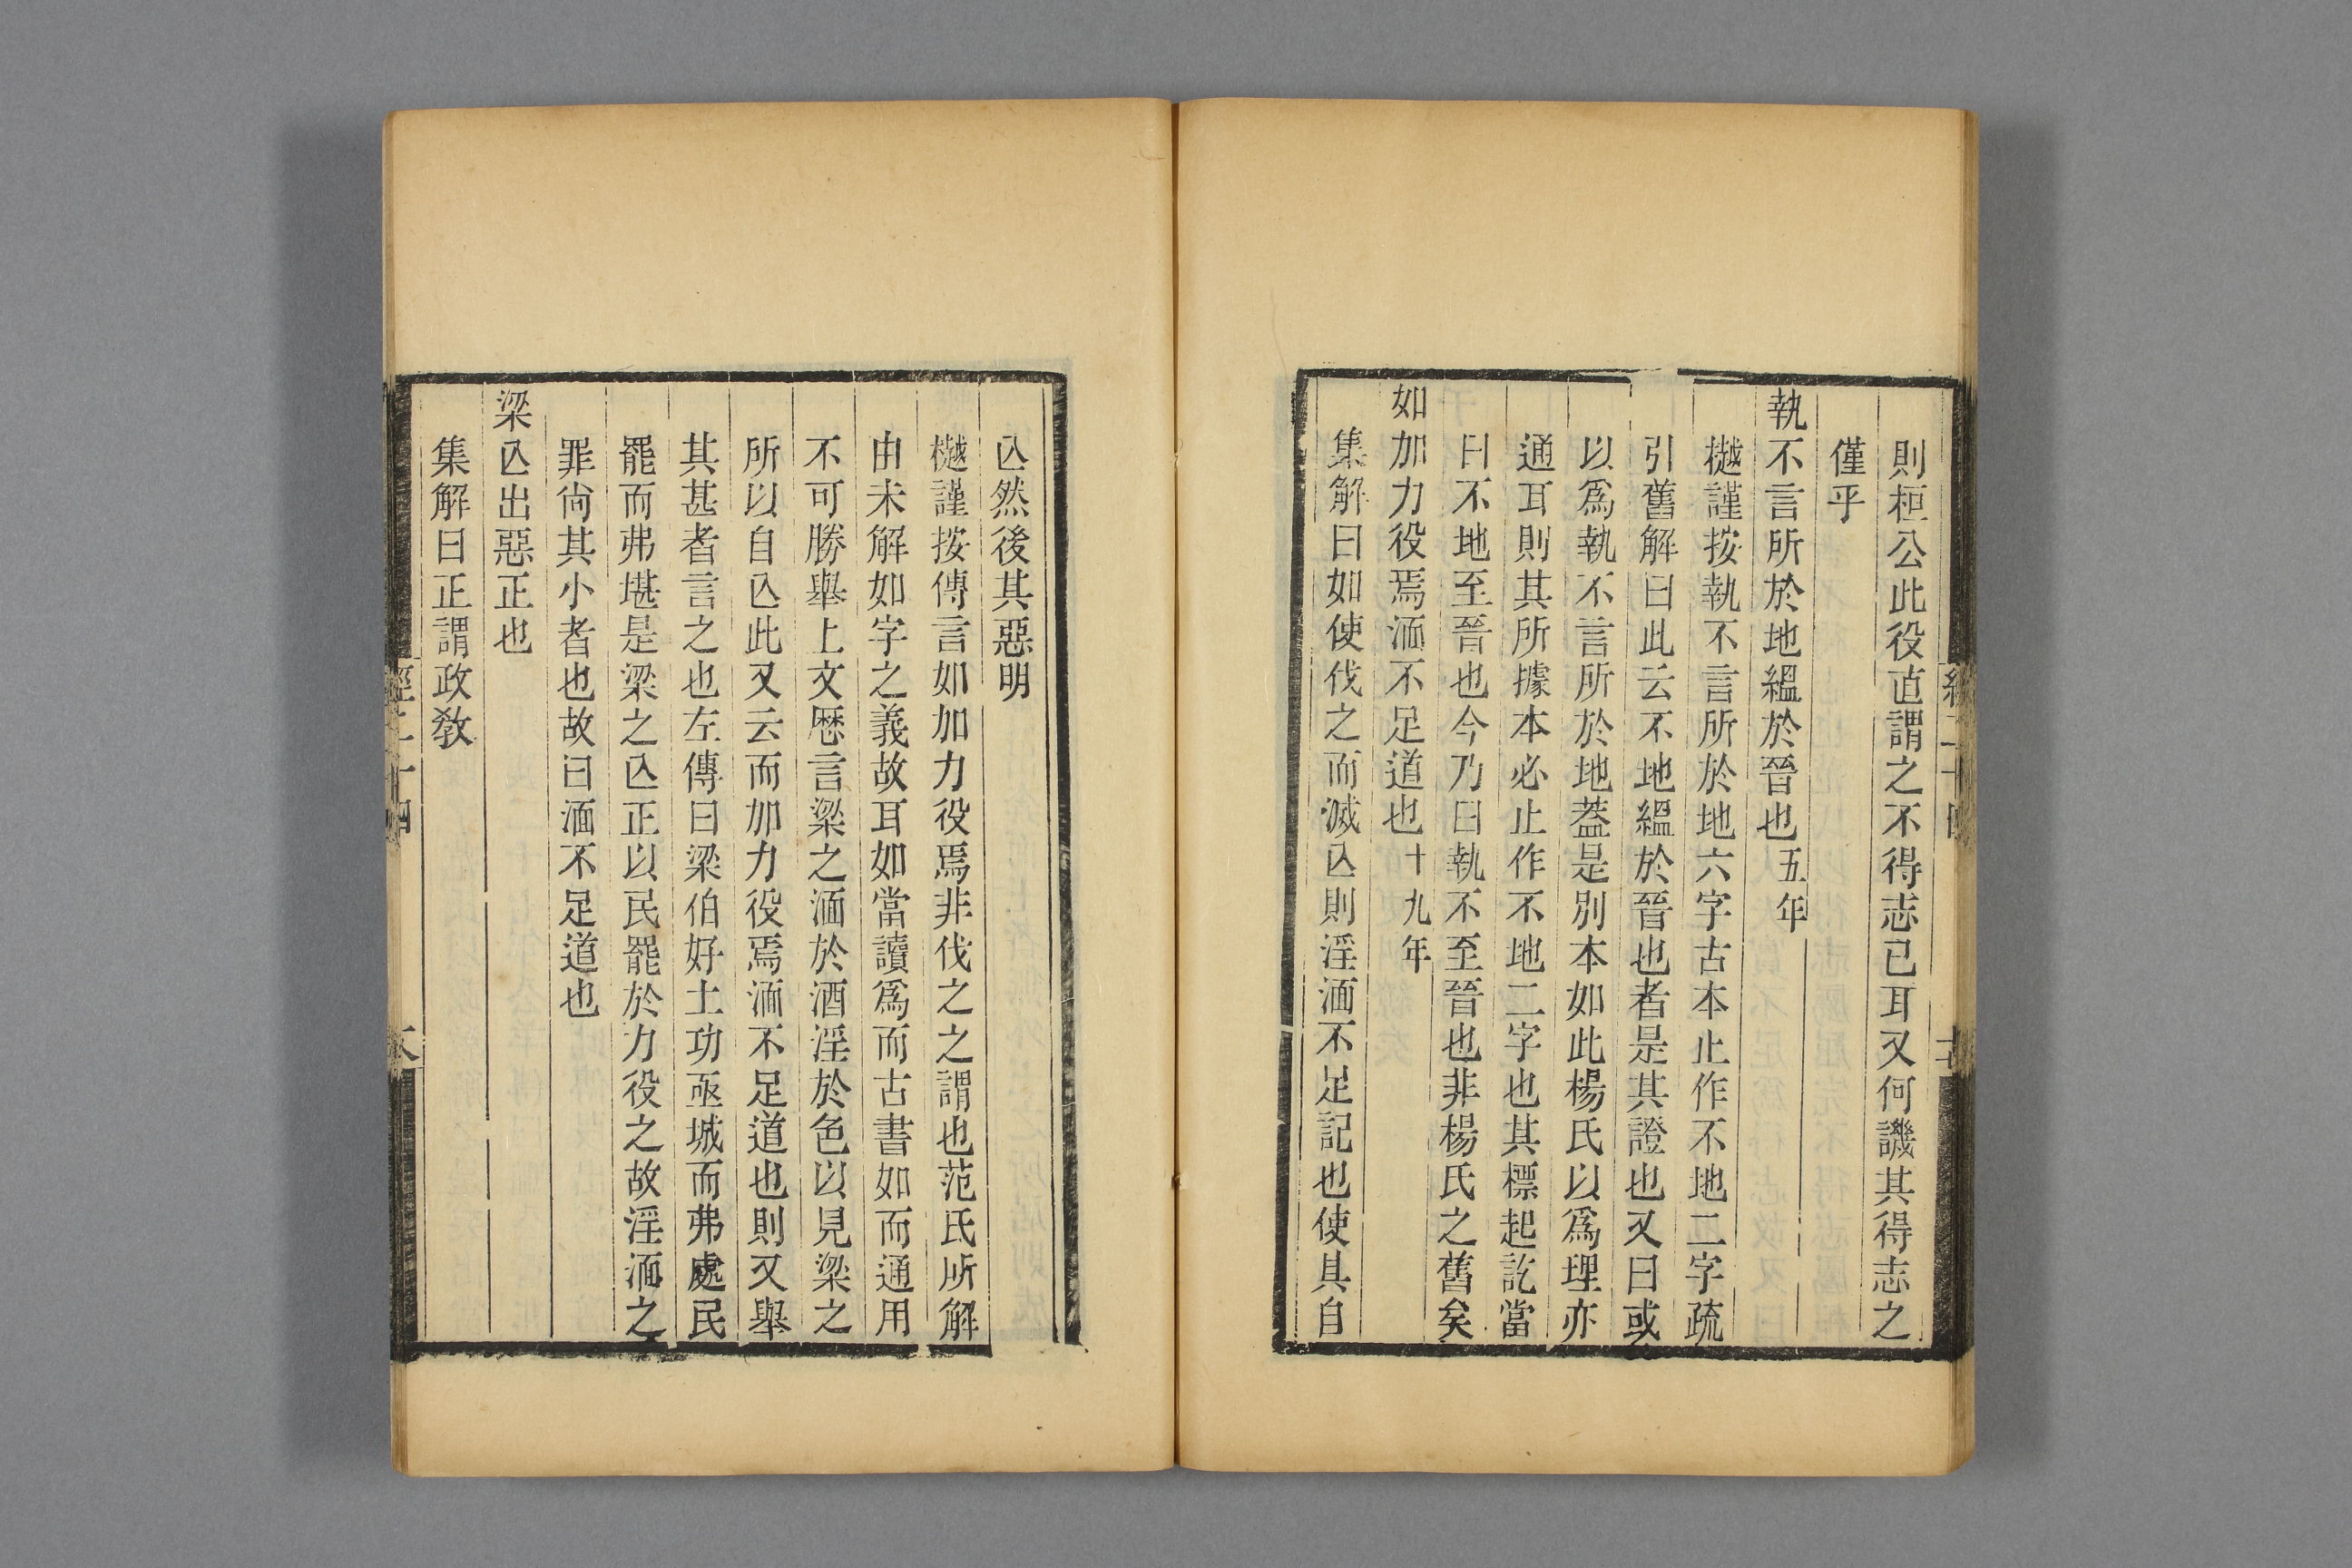 則桓公此役直謂之不得志已耳又何譏其得志之
僅乎
執不言所於地縕於晉也五年
樾謹按執不言所於地六字古本止作不地二字疏
引舊解曰此云不地縕於晉也者是其證也又曰或
以爲執不言所於地蓋是別本如此楊氏以爲理亦
通耳則其所據本必止作不地二字也其標起訖當
曰不地至晉也今乃曰執不至晉也非楊氏之舊矣
如加力役焉湎不足道也十九年
集解曰如使伐之而滅亾則淫湎不足記也使其自
亾然後其惡明
樾謹按傳言如加力役焉非伐之之謂也范氏所解
由未解如字之義故耳如當讀爲而古書如而通用
不可勝舉上文歷言梁之湎於酒淫於色以見梁之
所以自亾此又云而加力役焉湎不足道也則又舉
其甚者言之也左傳曰梁伯好土功亟城而弗處民
罷而弗堪是梁之亾正以民罷於力役之故淫湎之
罪尙其小者也故曰湎不足道也
梁亾出惡正也
集解曰正謂政敎